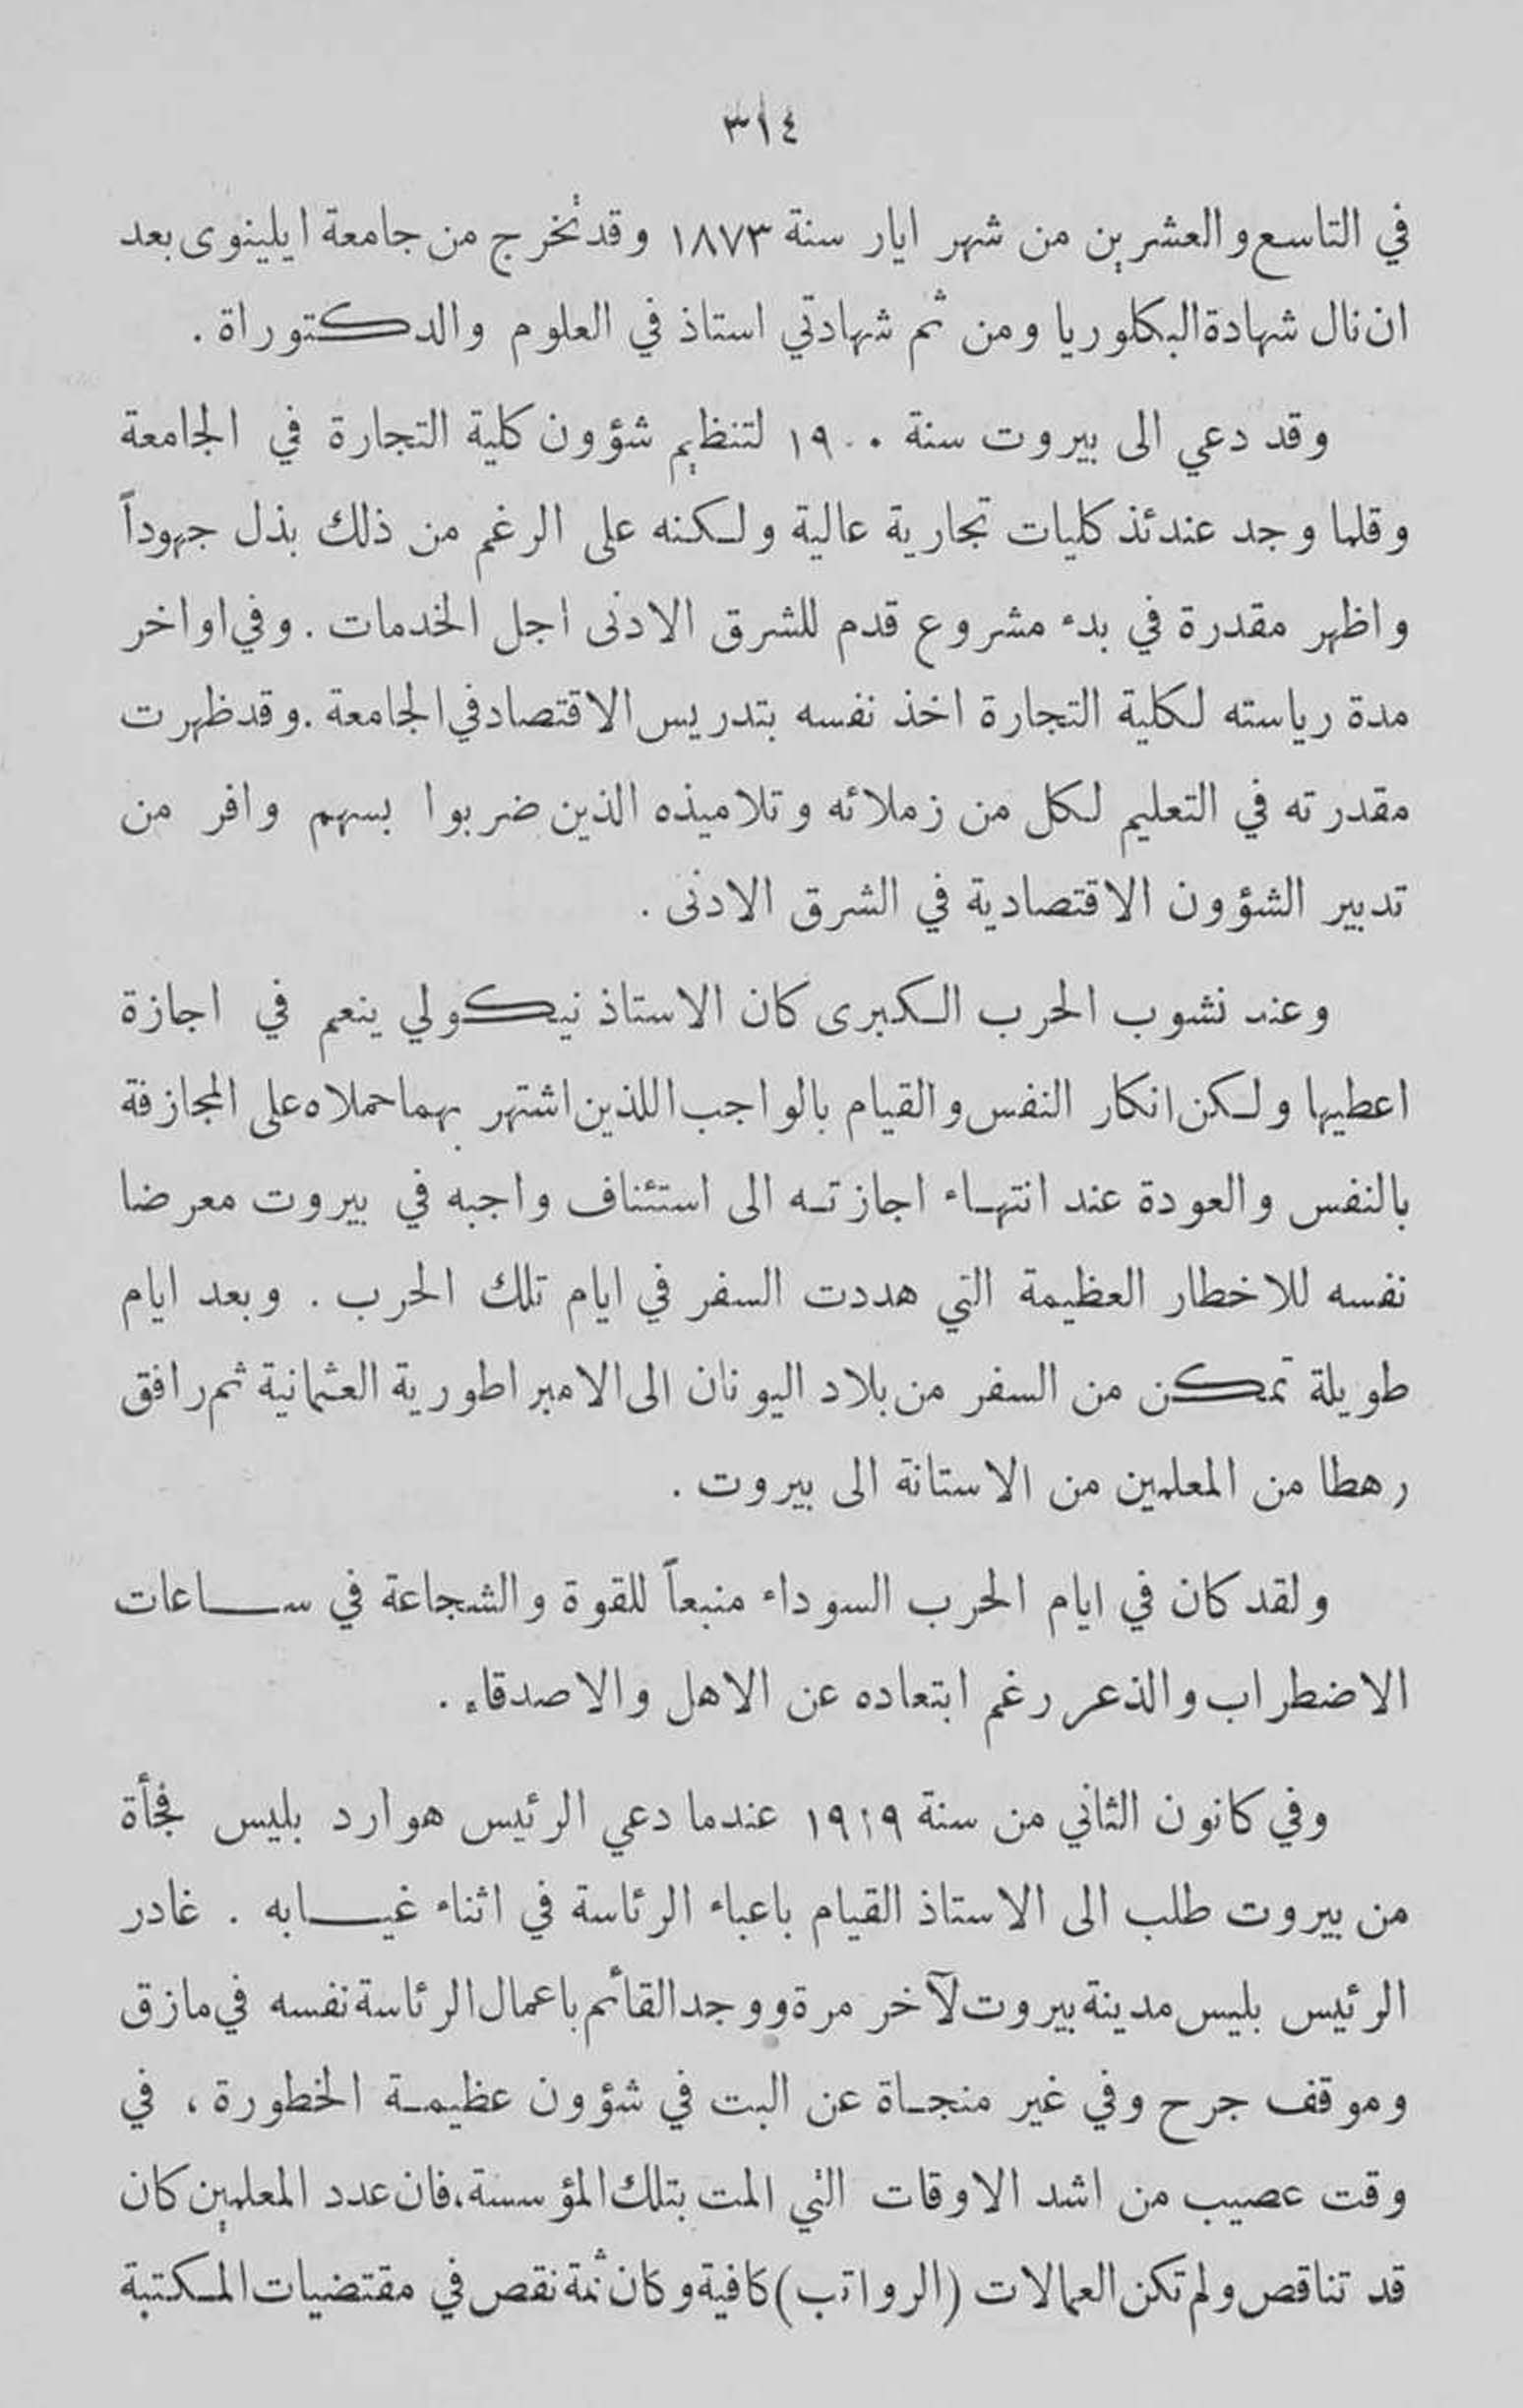 ٣١٤
في التاسع والعشرين من شهر ايار سنة ١٨٧٣ وقد تخرج من جامعة ايلينوى بعد
ان نال شهادة البكلوريا ومن ثم شهادتي استاذ في العلوم والدكتوراة .
وقد دعي الى بيروت سنة ١٩٠٠ لتنظيم شؤون كلية التجارة في الجامعة
وقلما وجد عندئذ كليات تجارية عالية ولكنه على الرغم من ذلك بذل جهوداً
واظهر مقدرة في بدء مشروع قدم للشرق الادنى اجل الخدمات . وفي اواخر
مدة رياسته لكلية التجارة اخذ نفسه بتدريس الاقتصاد في الجامعة . وقد ظهرت
مقدرته في التعليم لكل من زملائه وتلاميذه الذين ضربوا بسهم وافر من
تدبير الشؤون الاقتصادية في الشرق الادنى .
وعند نشوب الحرب الكبرى كان الاستاذ نيكولي ينعم في اجازة
اعطيها ولكن انكار النفس والقيام بالواجب اللذين اشتهر بهما حملاه على المجازفة
بالنفس والعودة عند انتهاء اجازته الى استئناف واجبه في بيروت معرضا
نفسه للاخطار العظيمة التي هددت السفر في ايام تلك الحرب . وبعد ايام
طويلة تمكن من السفر من بلاد اليونان الى الامبراطورية العثمانية ثم رافق
رهطا من المعلمين من الاستانة الى بيروت .
ولقد كان في ايام الحرب السوداء منبعاً للقوة والشجاعة في ساعات
الاضطراب والذعر رغم ابتعاده عن الاهل والاصدقاء .
وفي كانون الثاني من سنة ١٩١٩ عندما دعي الرئيس هوارد بليس فجأة
من بيروت طلب الى الاستاذ القيام باعباء الرئاسة في اثناء غيابه . غادر
الرئيس بليس مدينة بيروت لآخر مرة ووجد القائم باعمال الرئاسة نفسه في مازق
وموقف جرح وفي غير منجاة عن البت في شؤون عظيمة الخطورة ، في
وقت عصيب من اشد الاوقات التي المت بتلك المؤسسة ، فان عدد المعلمين كان
قد تناقص ولم تكن العمالات (الرواتب) كافية وكان ثمة نقص في مقتضيات المكتبة